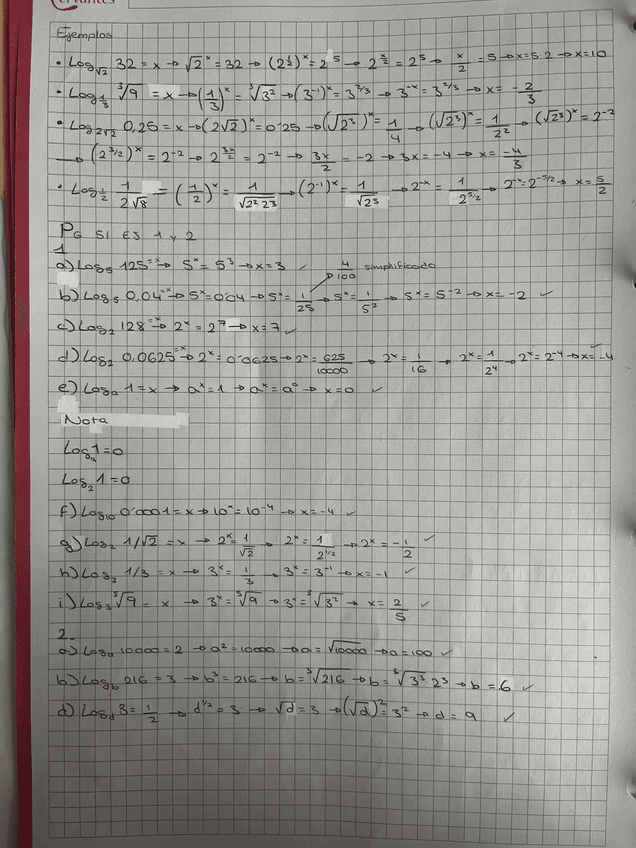 ervantes
Ejemplos
• Log√2 32 = x → √2^x = 32 → (2^½)^x = 2^5 → 2^(x/2) = 2^5 → x/2 = 5 → x = 5·2 → x = 10
• Log_(1/3) ³√9 = x → (1/3)^x = ³√3² → (3^-1)^x = 3^(2/3) → 3^-x = 3^(2/3) → x = -2/3
• Log_(2√2) 0,25 = x → (2√2)^x = 0'25 → (√2³)^x = 1/4 → (√2³)^x = 1/2² → (√2³)^x = 2^-2
→ (2^(3/2))^x = 2^-2 → 2^(3x/2) = 2^-2 → 3x/2 = -2 → 3x = -4 → x = -4/3
• Log_(1/2) 1/(2√8) = (1/2)^x = 1/√(2² 2³) → (2^-1)^x = 1/√2^5 → 2^-x = 1/2^(5/2) → 2^-x = 2^(-5/2) → x = 5/2
PG 51 E3 1 y 2
1
a) Log_5 125 = x → 5^x = 5³ → x = 3 ✓
4/100 simplificado
b) Log_5 0,04 = x → 5^x = 0'04 → 5^x = 1/25 → 5^x = 1/5² → 5^x = 5^-2 → x = -2 ✓
c) Log_2 128 = x → 2^x = 2^7 → x = 7 ✓
d) Log_2 0,0625 = x → 2^x = 0'0625 → 2^x = 625/10000 → 2^x = 1/16 → 2^x = 1/2^4 → 2^x = 2^-4 → x = -4 ✓
e) Log_a 1 = x → a^x = 1 → a^x = a^0 → x = 0 ✓
Nota
Log_a 1 = 0
Log_2 1 = 0
f) Log_10 0'0001 = x → 10^x = 10^-4 → x = -4 ✓
g) Log_2 1/√2 = x → 2^x = 1/√2 → 2^x = 1/2^(1/2) → 2^x = -1/2 ✓
h) Log_3 1/3 = x → 3^x = 1/3 → 3^x = 3^-1 → x = -1 ✓
i) Log_3 ⁵√9 = x → 3^x = ⁵√9 → 3^x = ⁵√3² → x = 2/5 ✓
2.
a) Log_a 10000 = 2 → a² = 10000 → a = √10000 → a = 100 ✓
b) Log_b 216 = 3 → b³ = 216 → b = ³√216 → b = ³√(3³ 2³) → b = 6 ✓
d) Log_d 3 = 1/2 → d^(1/2) = 3 → √d = 3 → (√d)² = 3² → d = 9 ✓